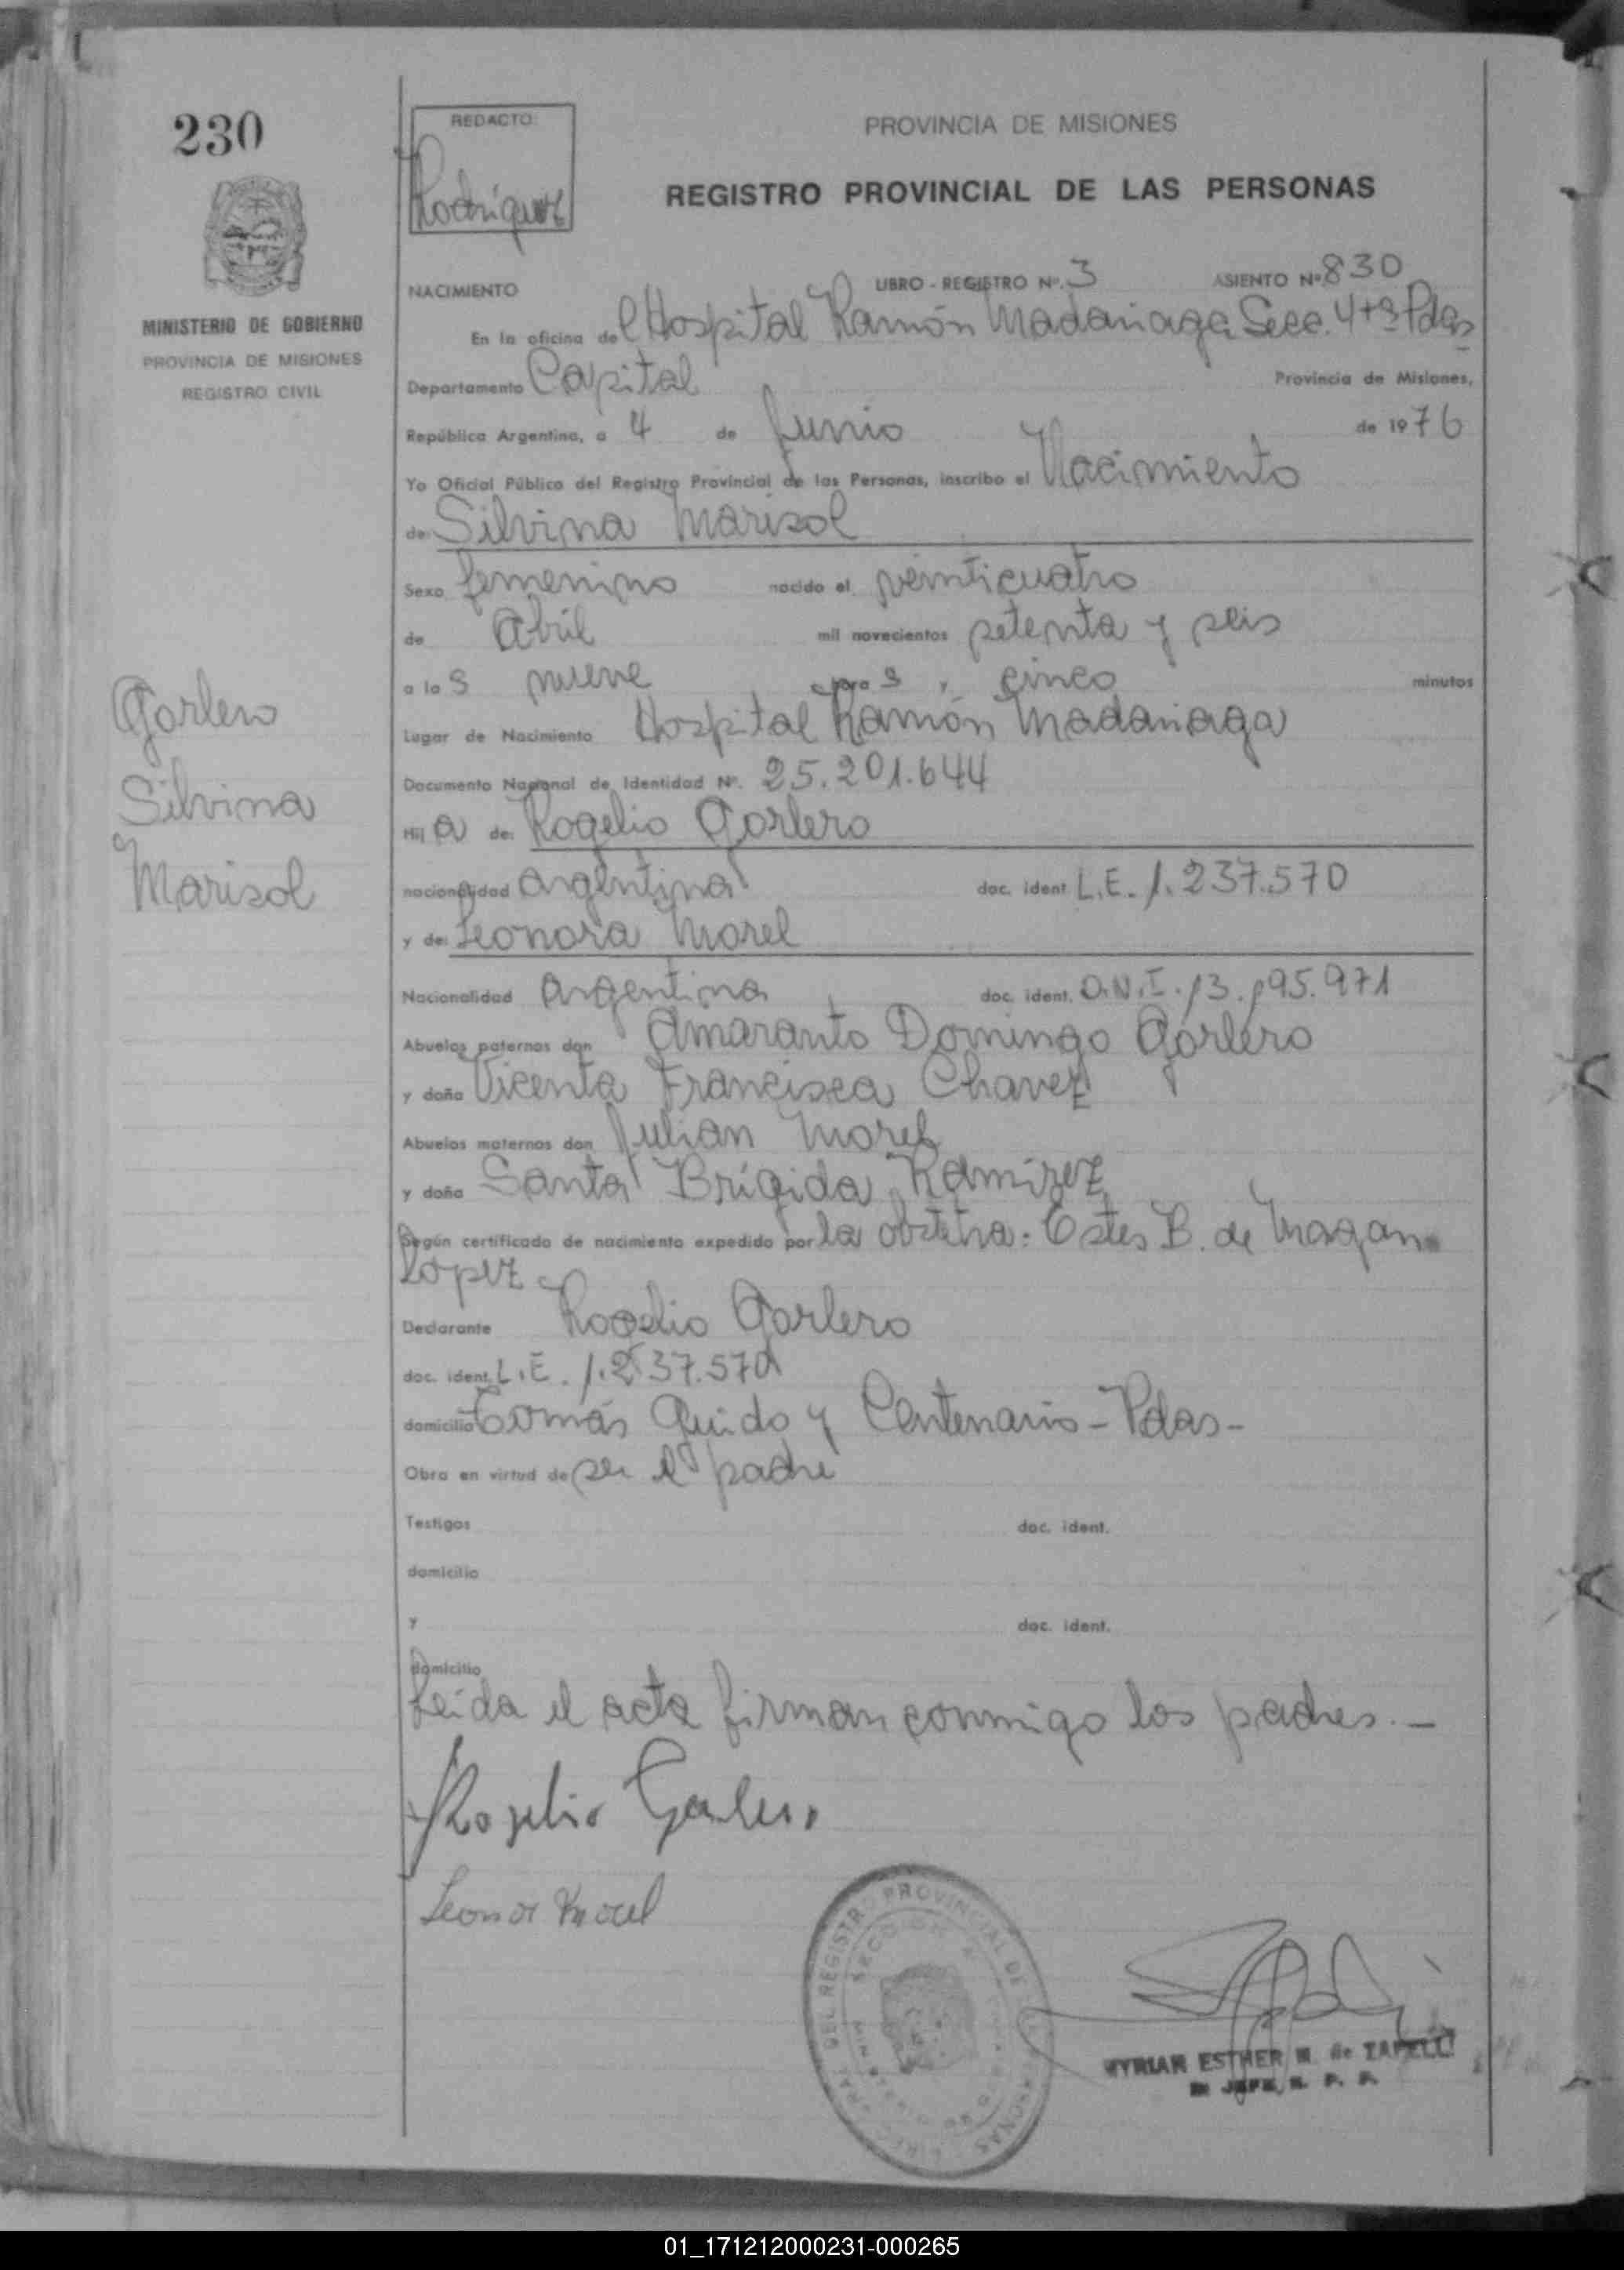 230
REDACTO:
Rodriguez
PROVINCIA DE MISIONES
REGISTRO PROVINCIAL DE LAS PERSONAS
MINISTERIO DE GOBIERNO
PROVINCIA DE MISIONES
REGISTRO CIVIL
NACIMIENTO LIBRO - REGISTRO Nº. 3 ASIENTO Nº 830
En la oficina del Hospital Ramón Madariaga Secc. 4ta Pdas
Departamento Capital Provincia de Misiones,
República Argentina, a 4 de Junio de 1976
Yo Oficial Público del Registro Provincial de las Personas, inscribo el Nacimiento
de: Silvina Marisol
Sexo femenino nacido el veinticuatro
de Abril mil novecientos setenta y seis
a las nueve horas y cinco minutos
Lugar de Nacimiento Hospital Ramón Madariaga
Documento Nacional de Identidad Nº. 25.201.644
Hija de: Rogelio Gorlero
nacionalidad argentina doc. ident L.E. 1.237.570
y de: Leonora Morel
Nacionalidad argentina doc. ident. D.N.I. 13.195.971
Abuelos paternos don Amaranto Domingo Gorlero
y doña Vicenta Francisca Chavez
Abuelos maternos don Julian Morel
y doña Santa Brígida Ramirez
Según certificado de nacimiento expedido por la obstetra: B. de
Lopez
Declarante Rogelio Gorlero
doc. ident. L.E. 1.237.570
domicilio Tomás Guido y Centenario - Pdas -
Obra en virtud de ser el padre
Testigos doc. ident.
domicilio
y doc. ident.
domicilio
Leida el acta firman conmigo los padres. -
Rogelio Gorlero
Leonor Morel
Gorlero
Silvina
Marisol
DEL REGISTRO PROVINCIAL DE LAS PERSONAS
MYRIAN ESTHER M. de ZAPELLI
JEFE R. P. P.
01_171212000231-000265